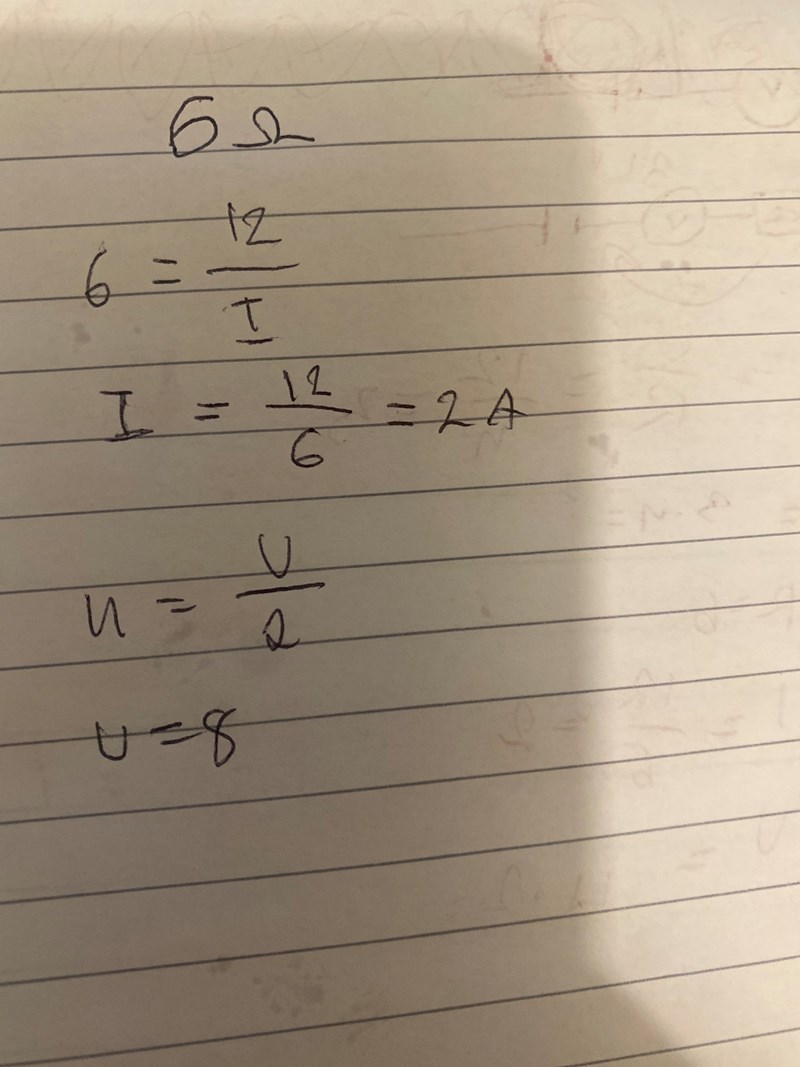 6 Ω
6 = 12 / I
I = 12 / 6 = 2 A
u = U / 2
U = 8